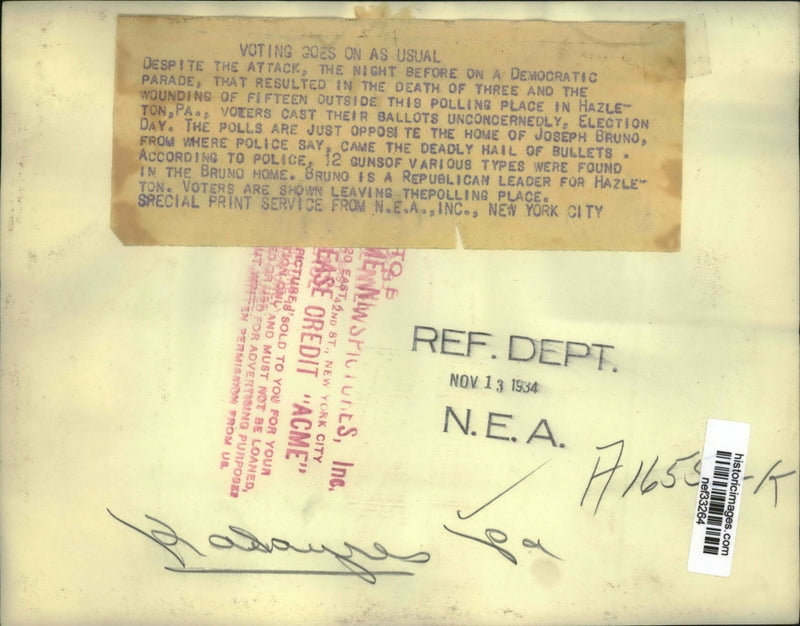 VOTING GOES ON AS USUAL
DESPITE THE ATTACK, THE NIGHT BEFORE ON A DEMOCRATIC
PARADE, THAT RESULTED IN THE DEATH OF THREE AND THE
WOUNDING OF FIFTEEN OUTSIDE THIS POLLING PLACE IN HAZLE-
TON,PA., VOTERS CAST THEIR BALLOTS UNCONCERNEDLY, ELECTION
DAY. THE POLLS ARE JUST OPPOSITE THE HOME OF JOSEPH BRUNO,
FROM WHERE POLICE SAY, CAME THE DEADLY HAIL OF BULLETS .
ACCORDING TO POLICE, 12 GUNSOF VARIOUS TYPES WERE FOUND
IN THE BRUNO HOME. BRUNO IS A REPUBLICAN LEADER FOR HAZLE-
TON. VOTERS ARE SHOWN LEAVING THEPOLLING PLACE.
SPECIAL PRINT SERVICE FROM N.E.A.,INC., NEW YORK CITY
NEWSPICTURES, Inc.
42ND ST., NEW YORK CITY
CREDIT "ACME"
SOLD TO YOU FOR YOUR
AND MUST NOT BE LOANED,
FOR ADVERTISING PURPOSES
PERMISSION FROM US.
REF. DEPT.
NOV 13 1934
N.E.A.
historicimages.com
nef33264